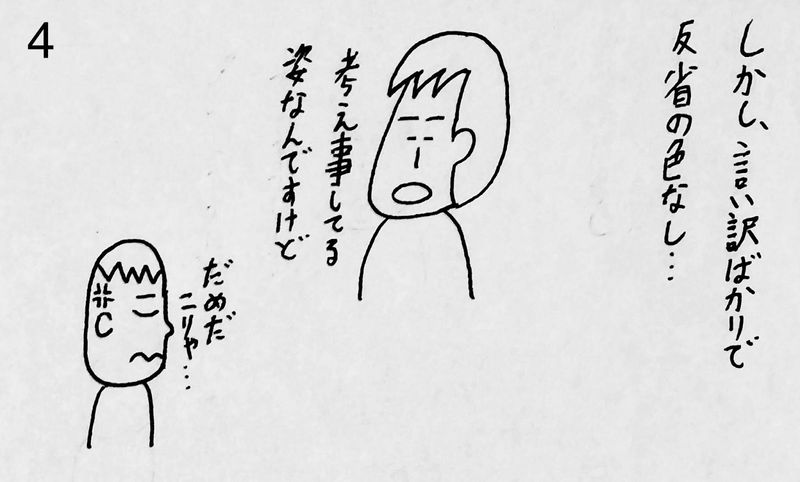 4
しかし、言い訳ばかりで
反省の色なし…
考え事してる
姿なんですけど
だめだ
こりゃ…